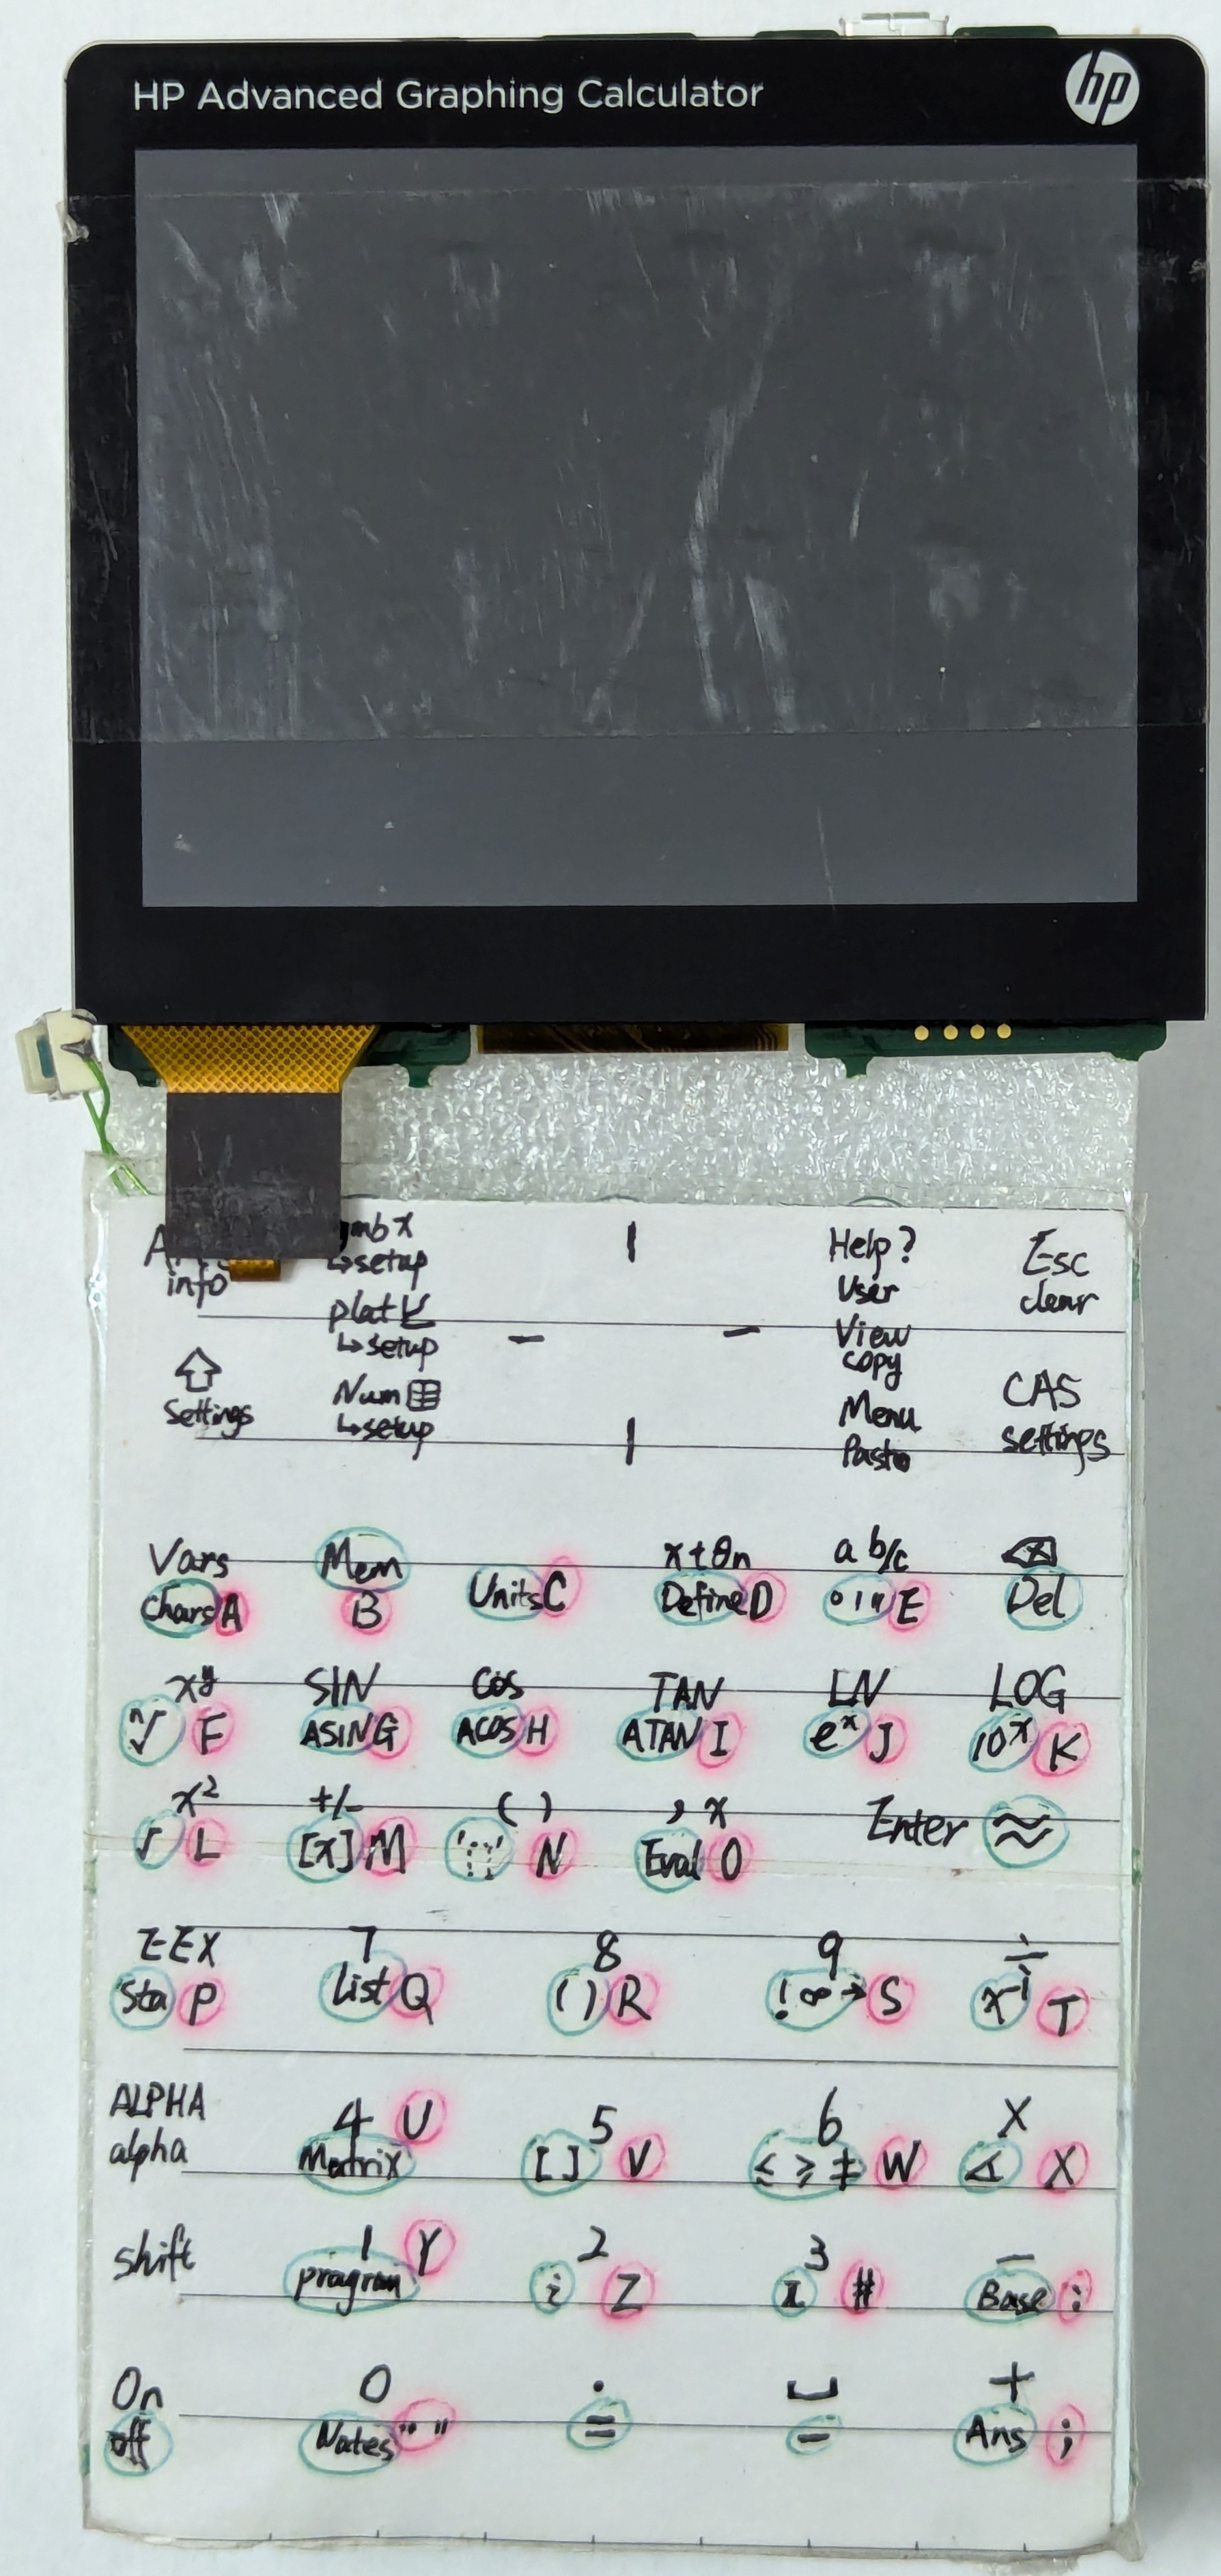 HP Advanced Graphing Calculator hp
info
setup
plot
↳setup
Num
↳setup
Settings
Help?
User
View
copy
Menu
Paste
Esc
clear
CAS
settings
Vars Mem xtθn a b/c ⌫
Chars A B Units C Define D ° ' " E Del
xʸ SIN COS TAN LN LOG
ⁿ√ F ASIN G ACOS H ATAN I eˣ J 10ˣ K
x² +/- ( ) , x Enter ≈
√ L [x] M N Eval O
EEX 7 8 9 ÷
Sto P List Q ( ) R ! ∞ → S x⁻¹ T
ALPHA 4 U 5 6 X
alpha Matrix [ ] V ≤ ≥ ≠ W ∡ X
shift 1 Y 2 3 −
program i Z π # Base :
On 0 . ␣ +
off Notes " " = _ Ans ;